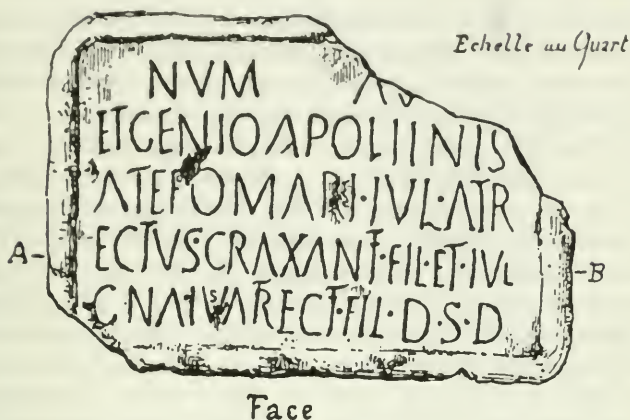 Echelle au Quart
NVM AV
ETGENIOAPOLIINIS
ATEPOMARI·IVL·ATR
A- -B
ECTVS·CRAXANT·FIL·ET·IVL
D·S·D
Face